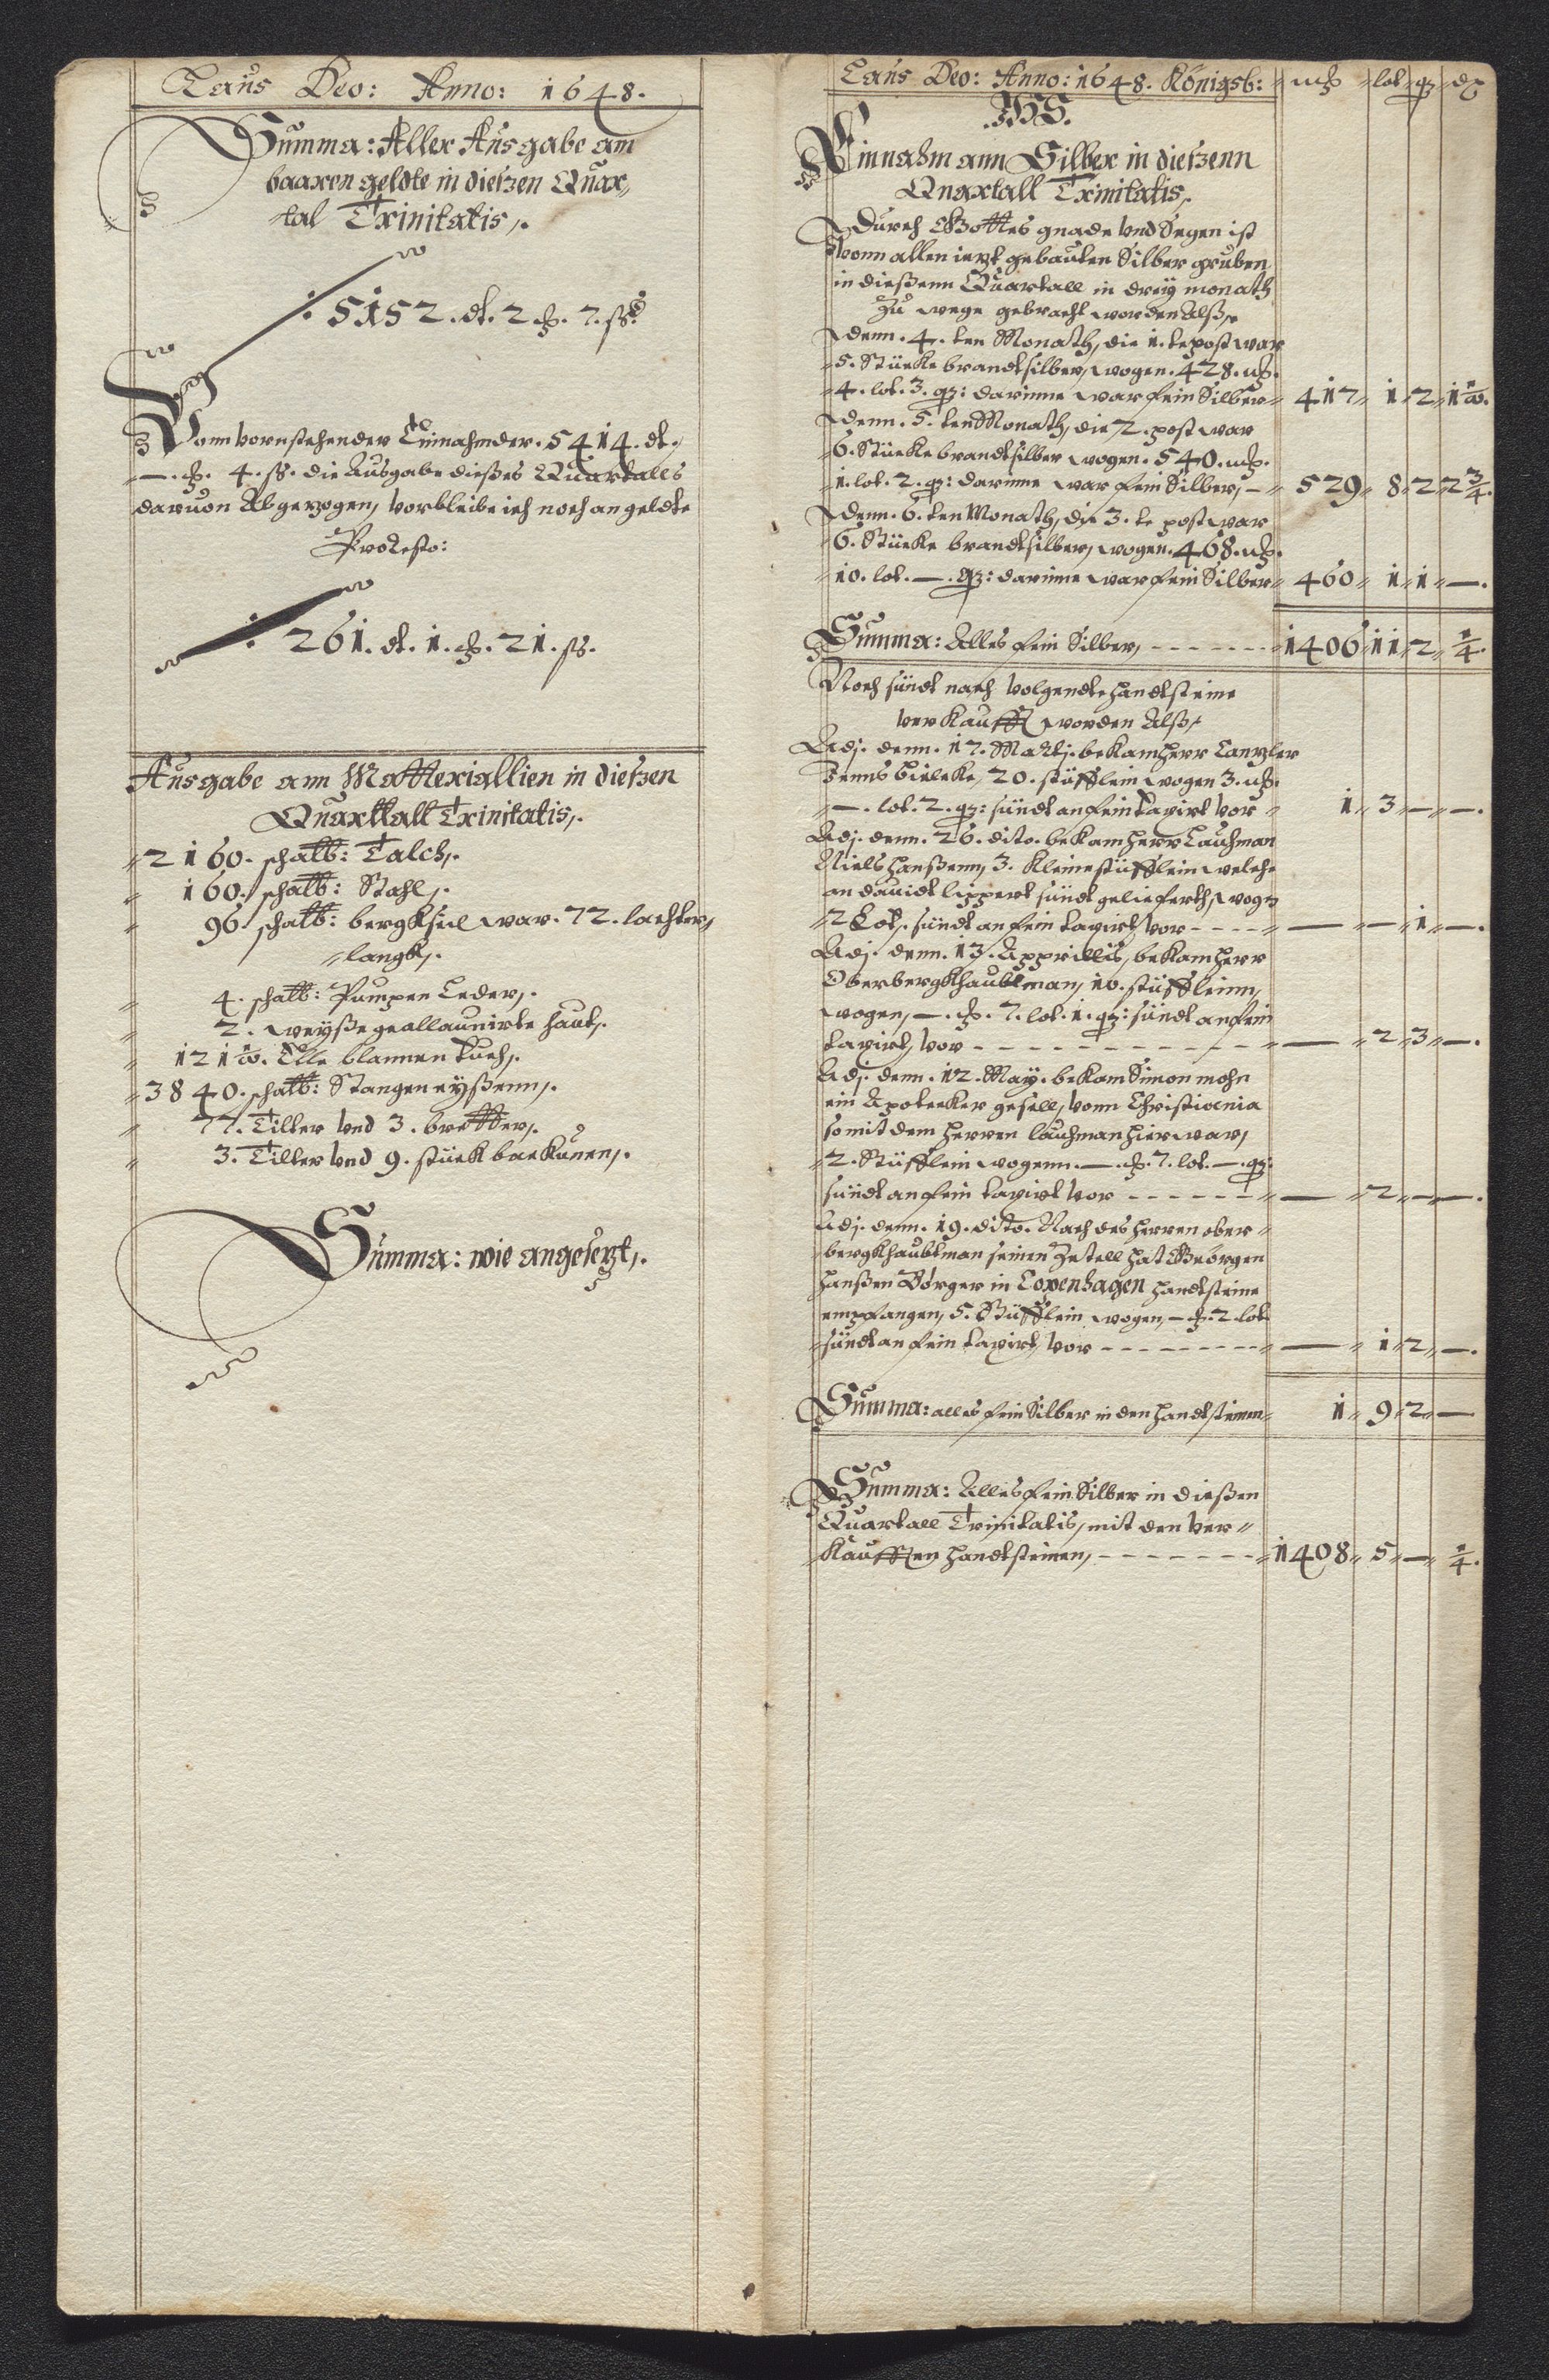 Laus Deo: Anno: 1648.
Summa: Aller Ausgabe am
baaren geldte in dießen Quar,,
tal Trinitatis,.
5152. dl. 2. ₰. 7. ß.
Vom vornstehender Einahmder. 5414. dl.,
—. ₰. 4. ß. die Ausgabe dießes Quartalls
daruon Abgezogen, vorbleibe ich noch an geldte
Protesto:
261. dl. 1. ₰. 21. ß.
Ausgabe ann Matteriallien in dießen
Quarttall Trinitatis,.
2160. schalb: Talch,.
160. schalb: Stahl,.
96 schalb: bergkseil war. 72. lachter,
langk,.
4. schalb: Pumpen Leder,.
2. weyße geallaunirte haut,.
121 ½. Elle blannen tuch,.
3840. schalb: Stangen eyßenn,.
77. Tilter vnd 3. bretter,.
3. Tilter vnd 9. stück backunen,.
Summa: wie angesezt,.
Laus Deo: Anno: 1648. Königsb: mk lot qz dz
IHS.
Einnahm ann Silber in dießenn
Quartall Trinitatis,
Durch Gottes gnade vnd Segen ist
vonn allen iezt gebauten Silber gruben
in dießenn Quartall in dreÿ monath
Zu wege gebracht worden Alß,
denn. 4. ten Monath, die 1. te post war
5. Stücke brandtsilber, wogen. 428. mk.
4. lot. 3. qz: darinne war fein Silber 417 1 2 1 ½.
denn. 5. ten Monath, die 2. post war
6. Stücke brandtsilber wogen. 540. mk.
1. lot. 2. qz: darinne war fein Silber, — 529 8 2 2 ¾.
denn. 6. ten Monath, die 3. te post war
6. Stücke brandtsilber, wogen. 468. mk.
10. lot. —. qz: darinne war fein Silber 460 1 1 —.
Summa: Alles fein Silber, - - - - - - - 1406 11 2 ¼.
Noch sündt nach volgendte handtsteine
verkaufft worden Alß,
Adj. denn. 17. Martj. bekam herr Canzler
Jenns bielcke, 20. stüfflein wogen 3. mk.
—. lot. 2. qz: sündt an fein taxirt vor 1 3 — —.
Adj. denn. 26. dito. bekam herr Lauhman
Niels hanßenn, 3. kleine stüfflein welche
an dauidt lippert sündt gelieferth, wogen
2 Lot,. sündt an fein taxirt, vor - - - - — — 1 —.
Adj. denn. 13. Apprillis, bekam herr
Oberbergkhaubtman, 10. stüffleinn,
wogen, —. ₰. 7. lot. 1. qz: sündt an fein
taxirt, vor - - - - - - - - - - - - — 2 3 —.
Adj. denn. 12. May. bekam Simon mohn
ein Apotecker gesell, vonn Christiania
so mit dem herren lauhman hier war,
2. Stüfflein wogenn. —. ₰. 7. lot. —. qz:
sündt an fein taxirt vor - - - - - - — 2 — —.
Adj. denn. 19. dito. Nach des herren ober,,
bergkhaubtman seinen Zetell hat Georgen
hanßen Börger in Copenhagen handtsteine
empfangen, 5. Stüfflein wogen, — ₰. 2 lot
sündt an fein taxirt, vor - - - - - - - - - — 1 2 —.
Summa: alles fein Silber in den handtsteinn 1 9 2 —
Summa: Alles fein Silber in dießen
Quartall Trinitatis, mit den ver,,
kaufften handtsteinen, - - - - - - - - 1408 5 — ¼.